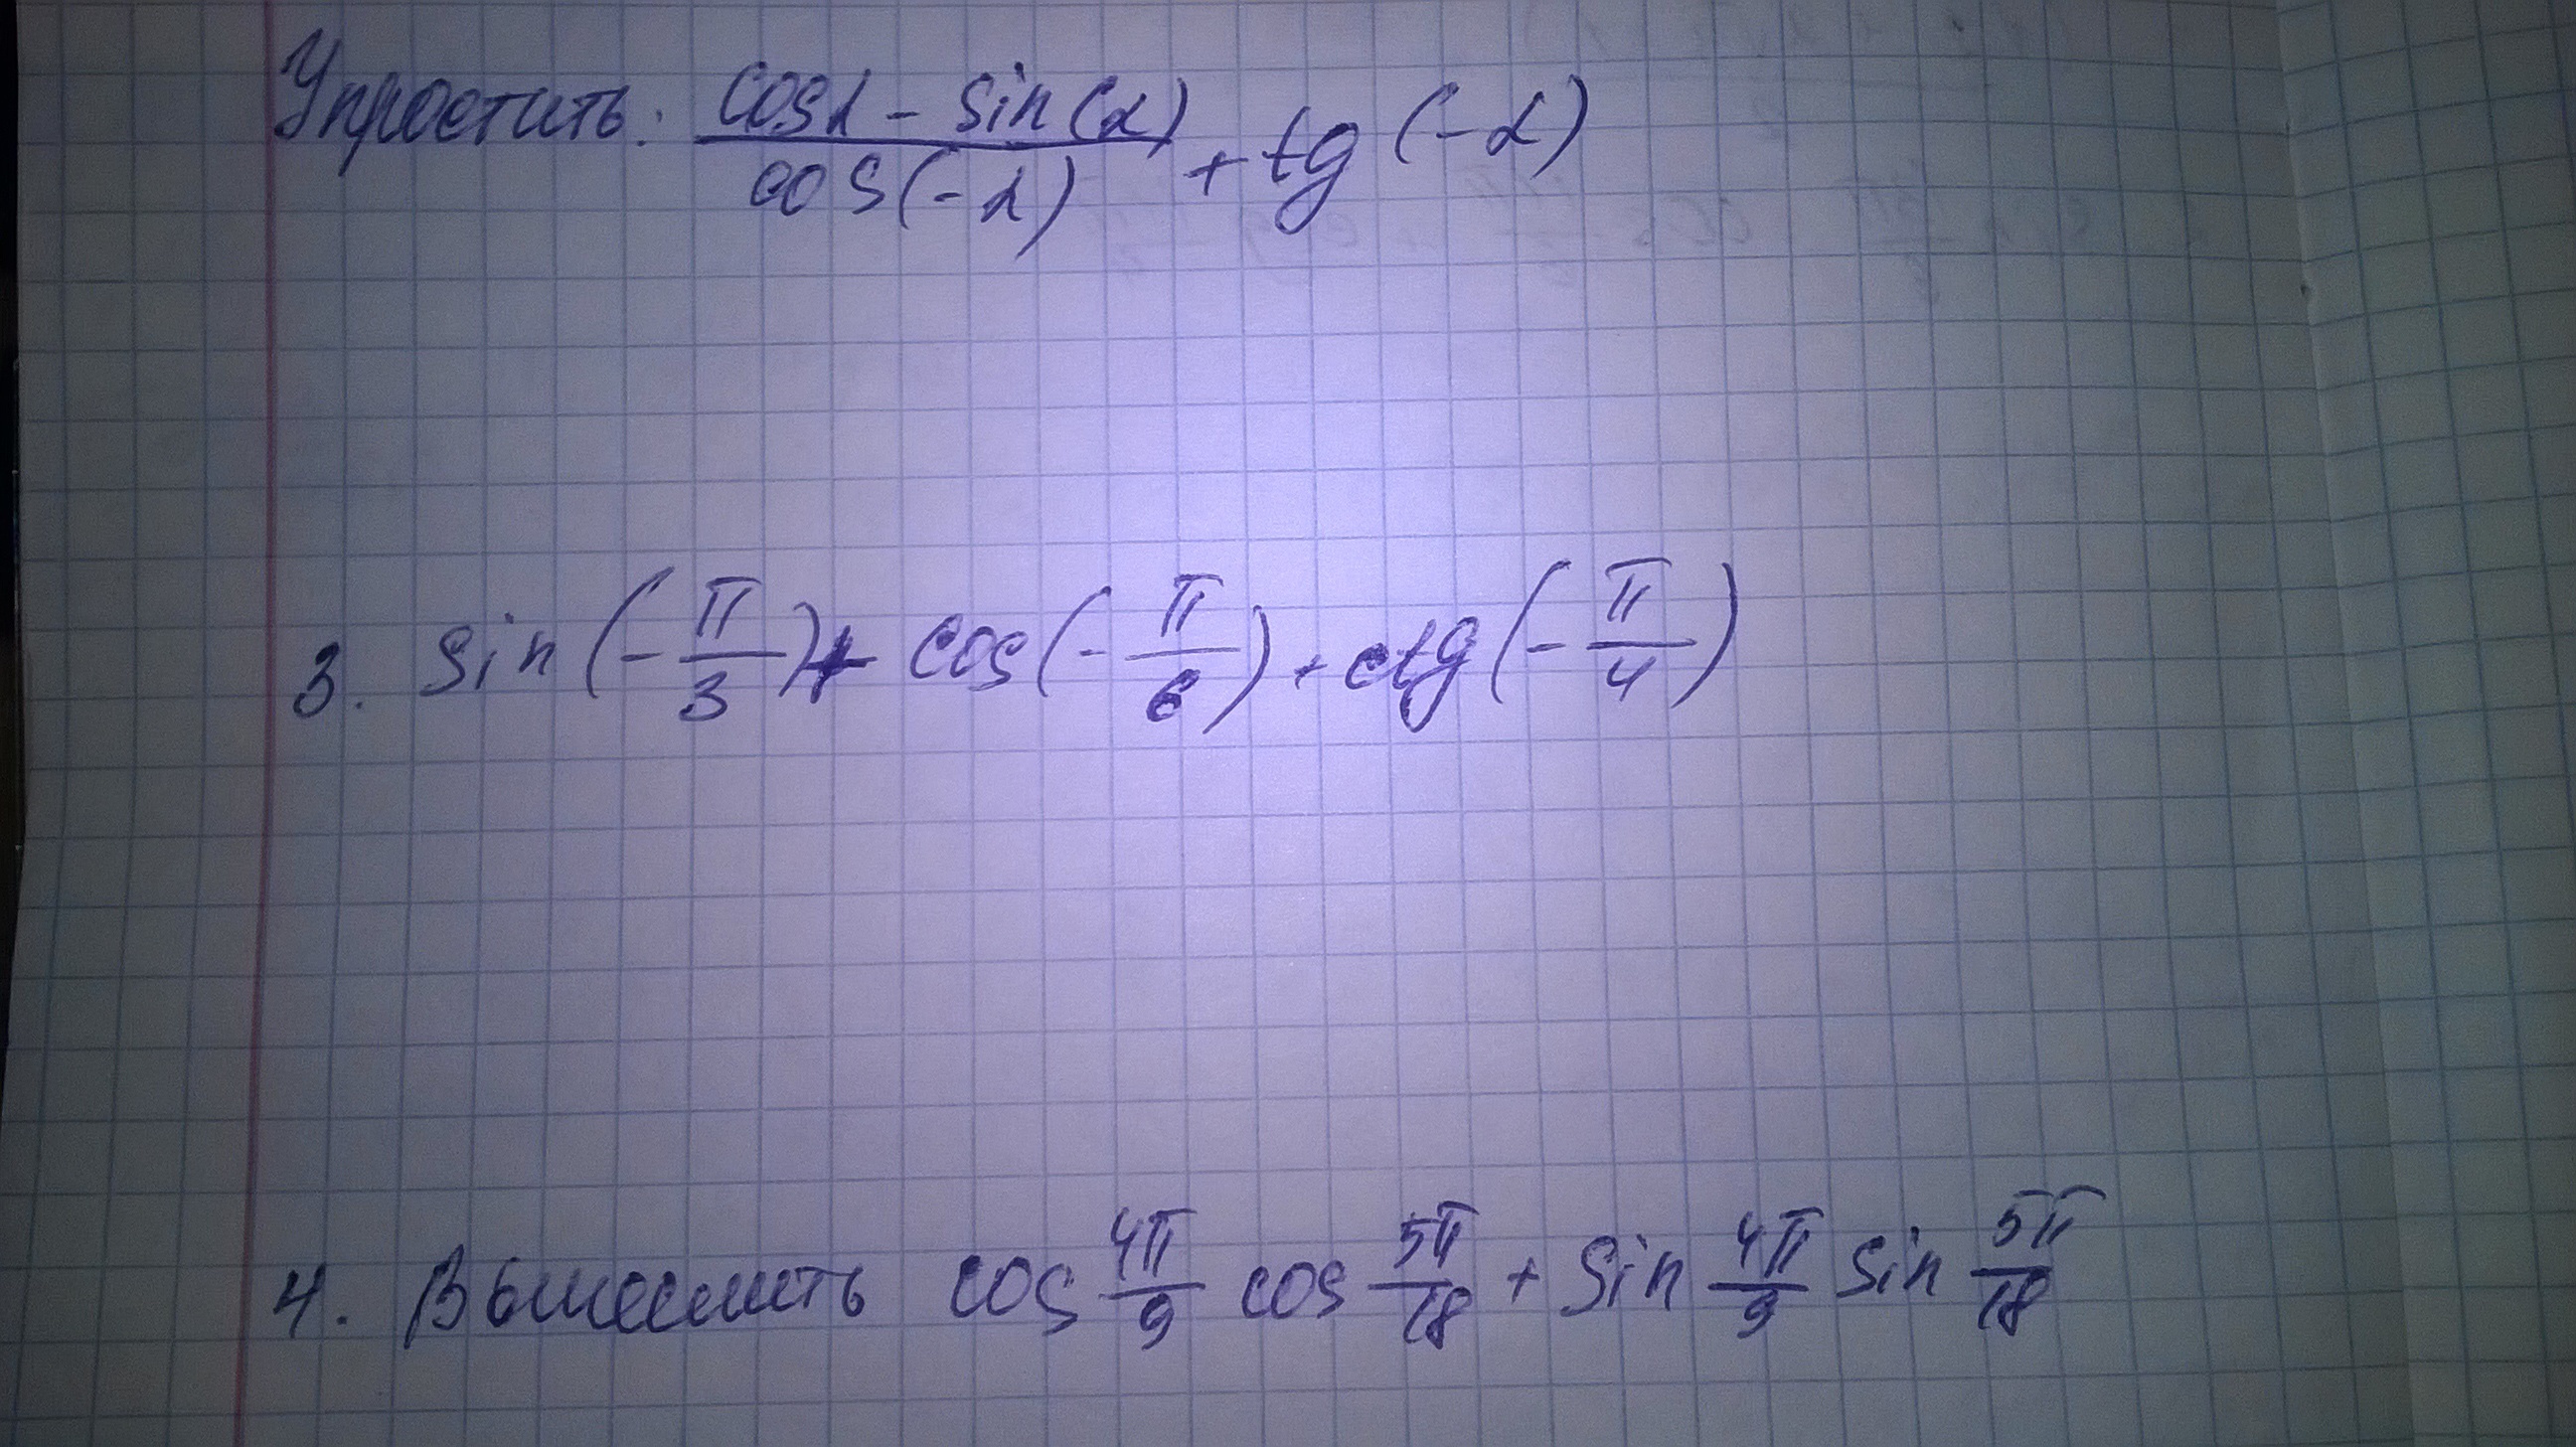 Упростить: (cosα - sin(α))/(cos(-α)) + tg(-α)
3. sin(-π/3) + cos(-π/6) + ctg(-π/4)
4. Вычислить cos 4π/9 cos 5π/18 + sin 4π/9 sin 5π/18